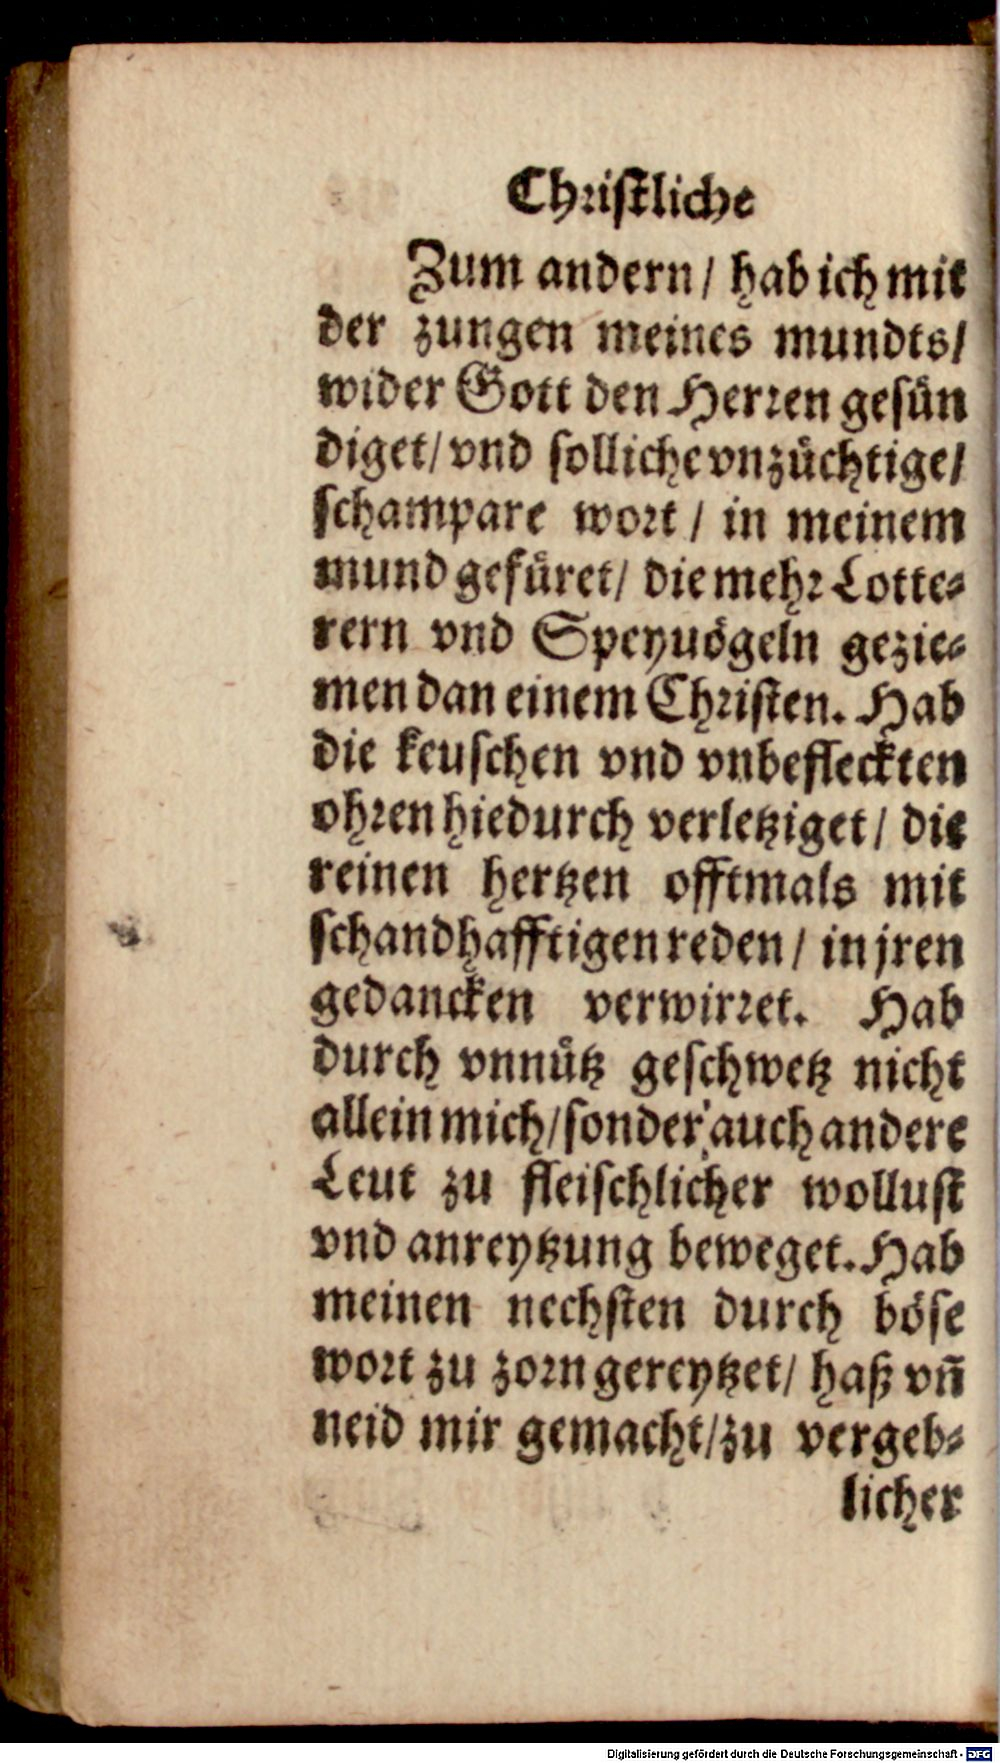 Christliche
Zum andern / hab ich mit
der zungen meines mundts /
wider Gott den Herren gesün
diget / vnd solliche vnzüchtige /
schampare wort / in meinem
mund gefüret / die mehr Lotte⸗
rern vnd Speyuögeln gezie⸗
men dan einem Christen. Hab
die keuschen vnd vnbefleckten
ohren hiedurch verletziget / die
reinen hertzen offtmals mit
schandhafftigen reden / in jren
gedancken verwirret. Hab
durch vnnütz geschwetz nicht
allein mich / sonder auch andere
Leut zu fleischlicher wollust
vnd anreytzung beweget. Hab
meinen nechsten durch böse
wort zu zorn gereytzet / haß vñ
neid mir gemacht / zu vergeb⸗
licher
Digitalisierung gefördert durch die Deutsche Forschungsgemeinschaft - DFG